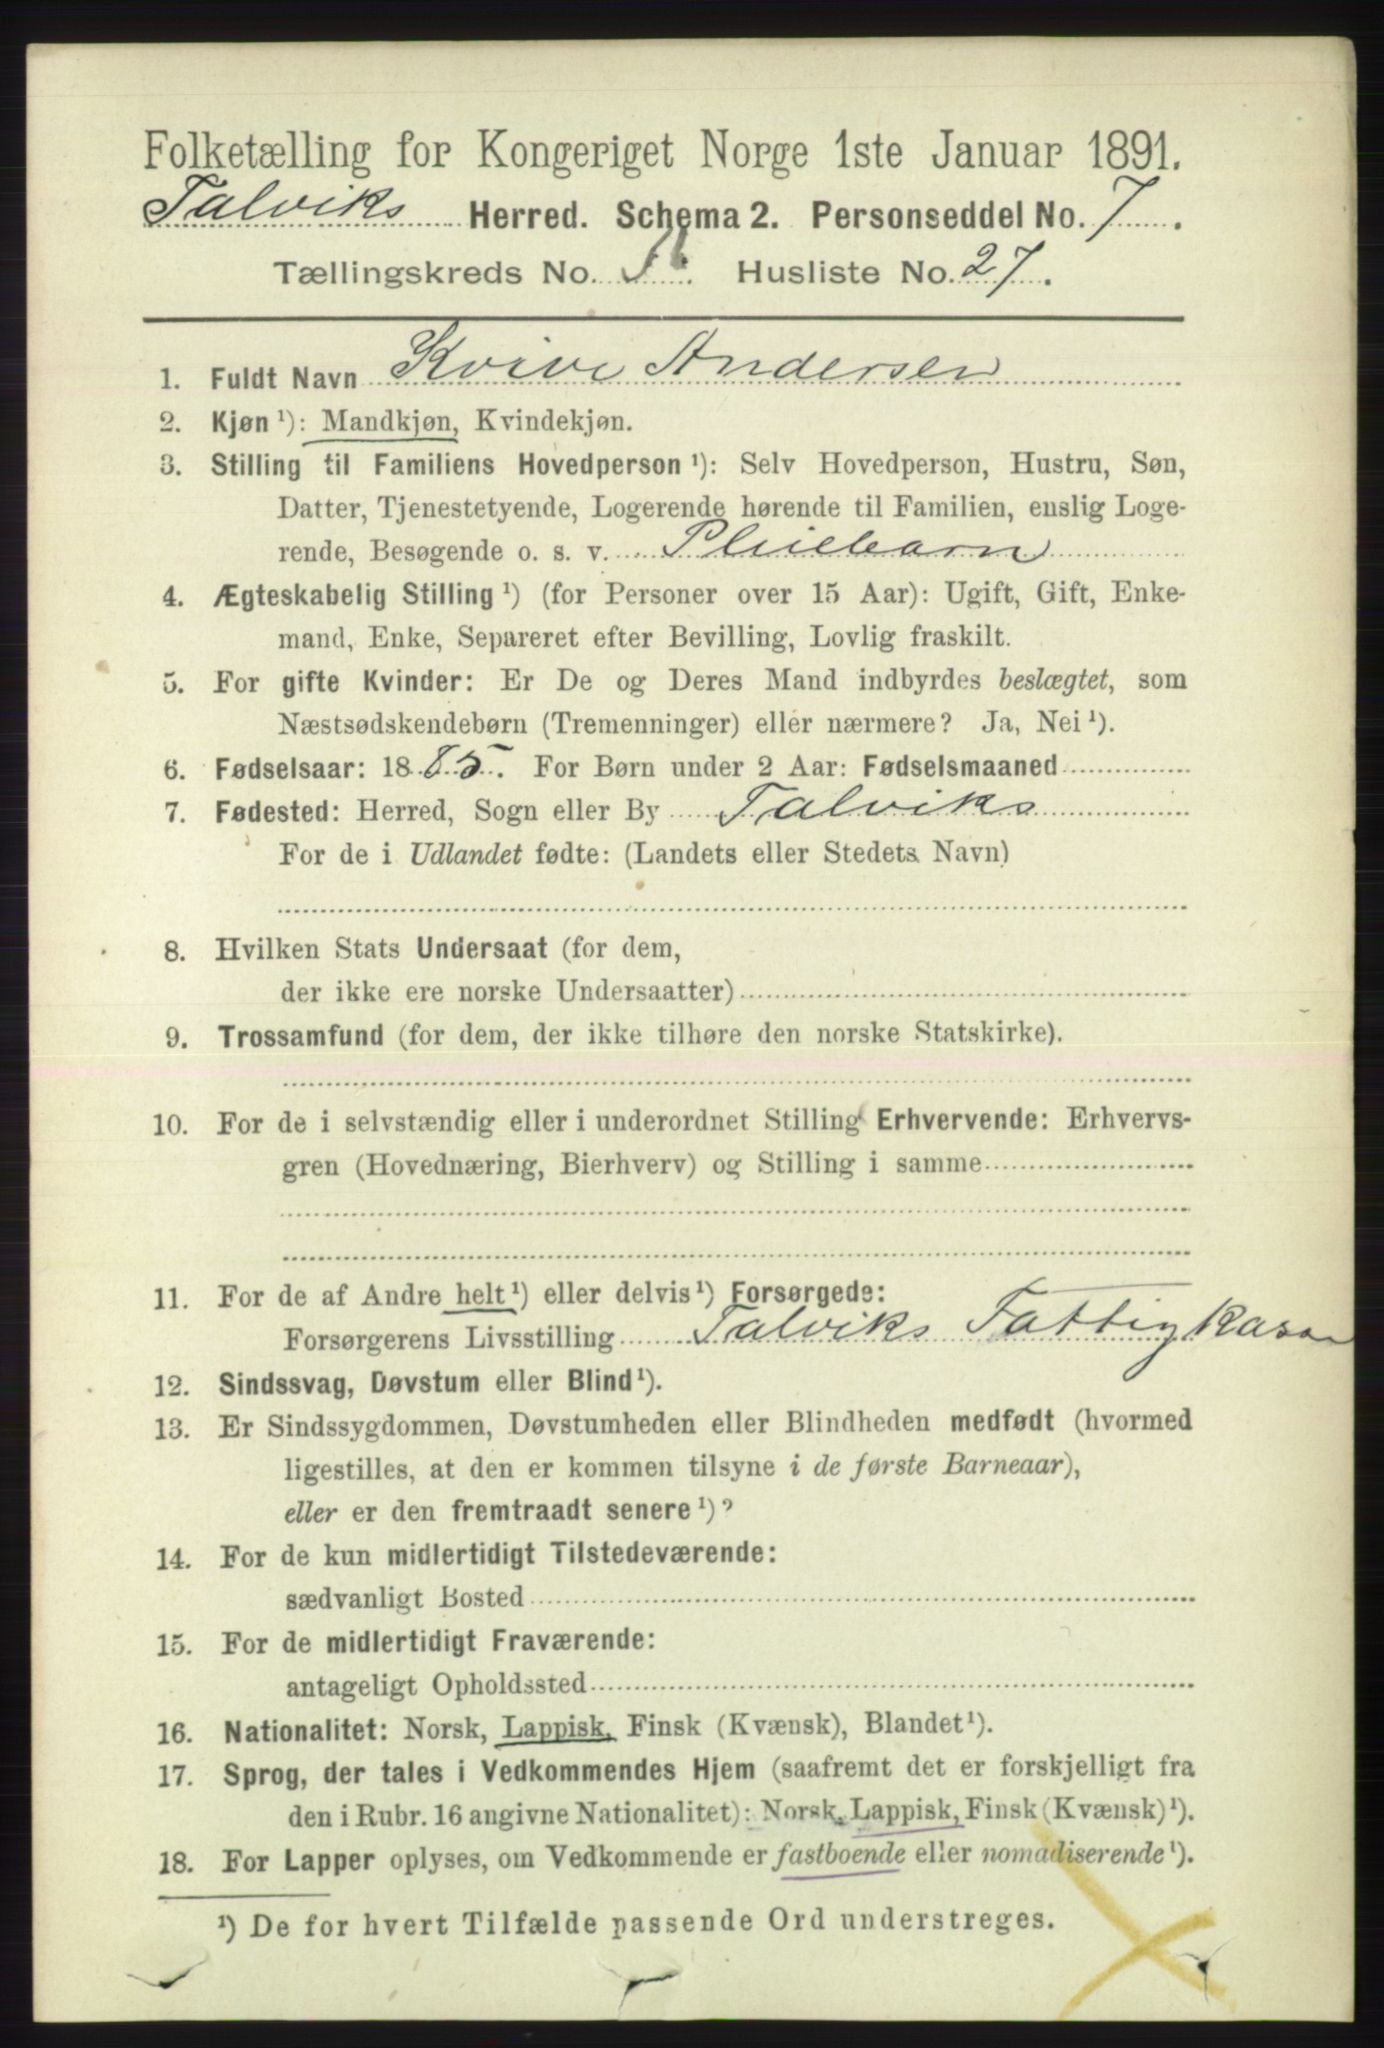 Folketælling for Kongeriget Norge 1ste Januar 1891.
Talviks Herred. Schema 2. Personseddel No. 7.
Tællingskreds No. Husliste No. 27.
1. Fuldt Navn Kvive Andersen
2. Kjøn ¹): Mandkjøn, Kvindekjøn.
3. Stilling til Familiens Hovedperson ¹): Selv Hovedperson, Hustru, Søn,
Datter, Tjenestetyende, Logerende hørende til Familien, enslig Loge-
rende, Besøgende o. s. v. Pleiebarn
4. Ægteskabelig Stilling ¹) (for Personer over 15 Aar): Ugift, Gift, Enke-
mand, Enke, Separeret efter Bevilling, Lovlig fraskilt.
5. For gifte Kvinder: Er De og Deres Mand indbyrdes beslægtet, som
Næstsødskendebørn (Tremenninger) eller nærmere? Ja, Nei ¹).
6. Fødselsaar: 1885. For Børn under 2 Aar: Fødselsmaaned
7. Fødested: Herred, Sogn eller By Talviks
For de i Udlandet fødte: (Landets eller Stedets Navn)
8. Hvilken Stats Undersaat (for dem,
der ikke ere norske Undersaatter)
9. Trossamfund (for dem, der ikke tilhøre den norske Statskirke).
10. For de i selvstændig eller i underordnet Stilling Erhvervende: Erhvervs-
gren (Hovednæring, Bierhverv) og Stilling i samme
11. For de af Andre helt ¹) eller delvis ¹) Forsørgede:
Forsørgerens Livsstilling Talviks Fattigkasse
12. Sindssvag, Døvstum eller Blind ¹).
13. Er Sindssygdommen, Døvstumheden eller Blindheden medfødt (hvormed
ligestilles, at den er kommen tilsyne i de første Barneaar),
eller er den fremtraadt senere ¹)?
14. For de kun midlertidigt Tilstedeværende:
sædvanligt Bosted
15. For de midlertidigt Fraværende:
antageligt Opholdssted
16. Nationalitet: Norsk, Lappisk, Finsk (Kvænsk), Blandet ¹).
17. Sprog, der tales i Vedkommendes Hjem (saafremt det er forskjelligt fra
den i Rubr. 16 angivne Nationalitet): Norsk, Lappisk, Finsk (Kvænsk) ¹).
18. For Lapper oplyses, om Vedkommende er fastboende eller nomadiserende ¹).
¹) De for hvert Tilfælde passende Ord understreges.